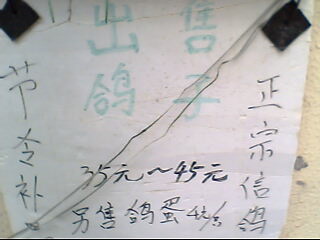 出售
鸽子
节令补
正宗信鸽
35元～45元
另售鸽蛋4元/